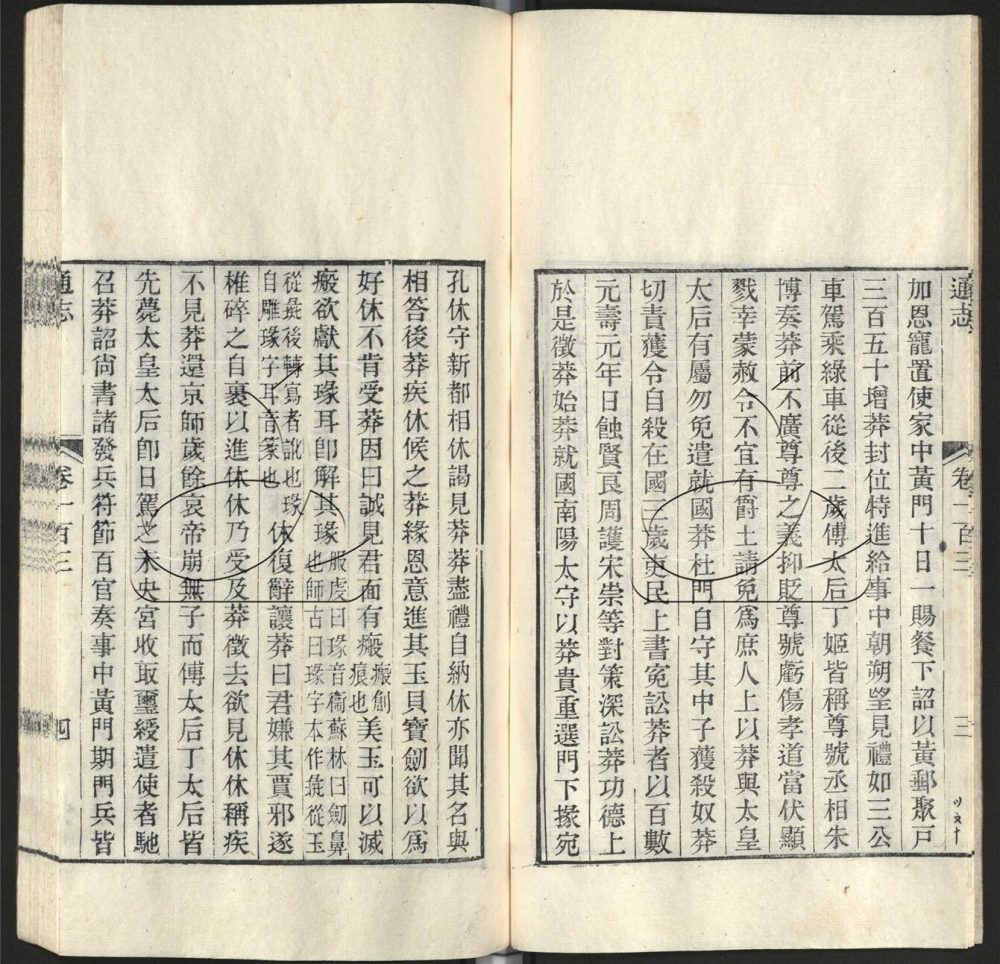 通志
卷一百三
三
加恩寵置使家中黃門十日一賜餐下詔以黃郵聚戸
三百五十增莽封位特進給事中朝朔望見禮如三公
車駕乘綠車從後二歲傅太后丁姬皆稱尊號丞相朱
博奏莽前不廣尊尊之義抑貶尊號虧傷孝道當伏顯
戮幸蒙赦令不宜有爵土請免爲庶人上以莽與太皇
太后有屬勿免遣就國莽杜門自守其中子獲殺奴莽
切責獲令自殺在國三歲吏民上書寃訟莽者以百數
元壽元年日蝕賢良周護宋崇等對策深訟莽功德上
於是徵莽始莽就國南陽太守以莽貴重選門下掾宛
孔休守新都相休謁見莽莽盡禮自納休亦聞其名與
相答後莽疾休候之莽緣恩意進其玉貝寶劒欲以爲
好休不肯受莽因曰誠見君面有瘢瘢創痕也美玉可以滅
瘢欲獻其瑑耳卽解其瑑服虔曰瑑音衞蘇林曰劒鼻也師古曰瑑字本作璏從玉
從彘後轉寫者訛也瑑自雕瑑字耳音篆也休復辭讓莽曰君嫌其賈邪遂
椎碎之自裹以進休休乃受及莽徵去欲見休休稱疾
不見莽還京師歲餘哀帝崩無子而傅太后丁太后皆
先薨太皇太后卽日駕之未央宮收取璽綬遣使者馳
召莽詔尚書諸發兵符節百官奏事中黃門期門兵皆
通志
卷一百三
四